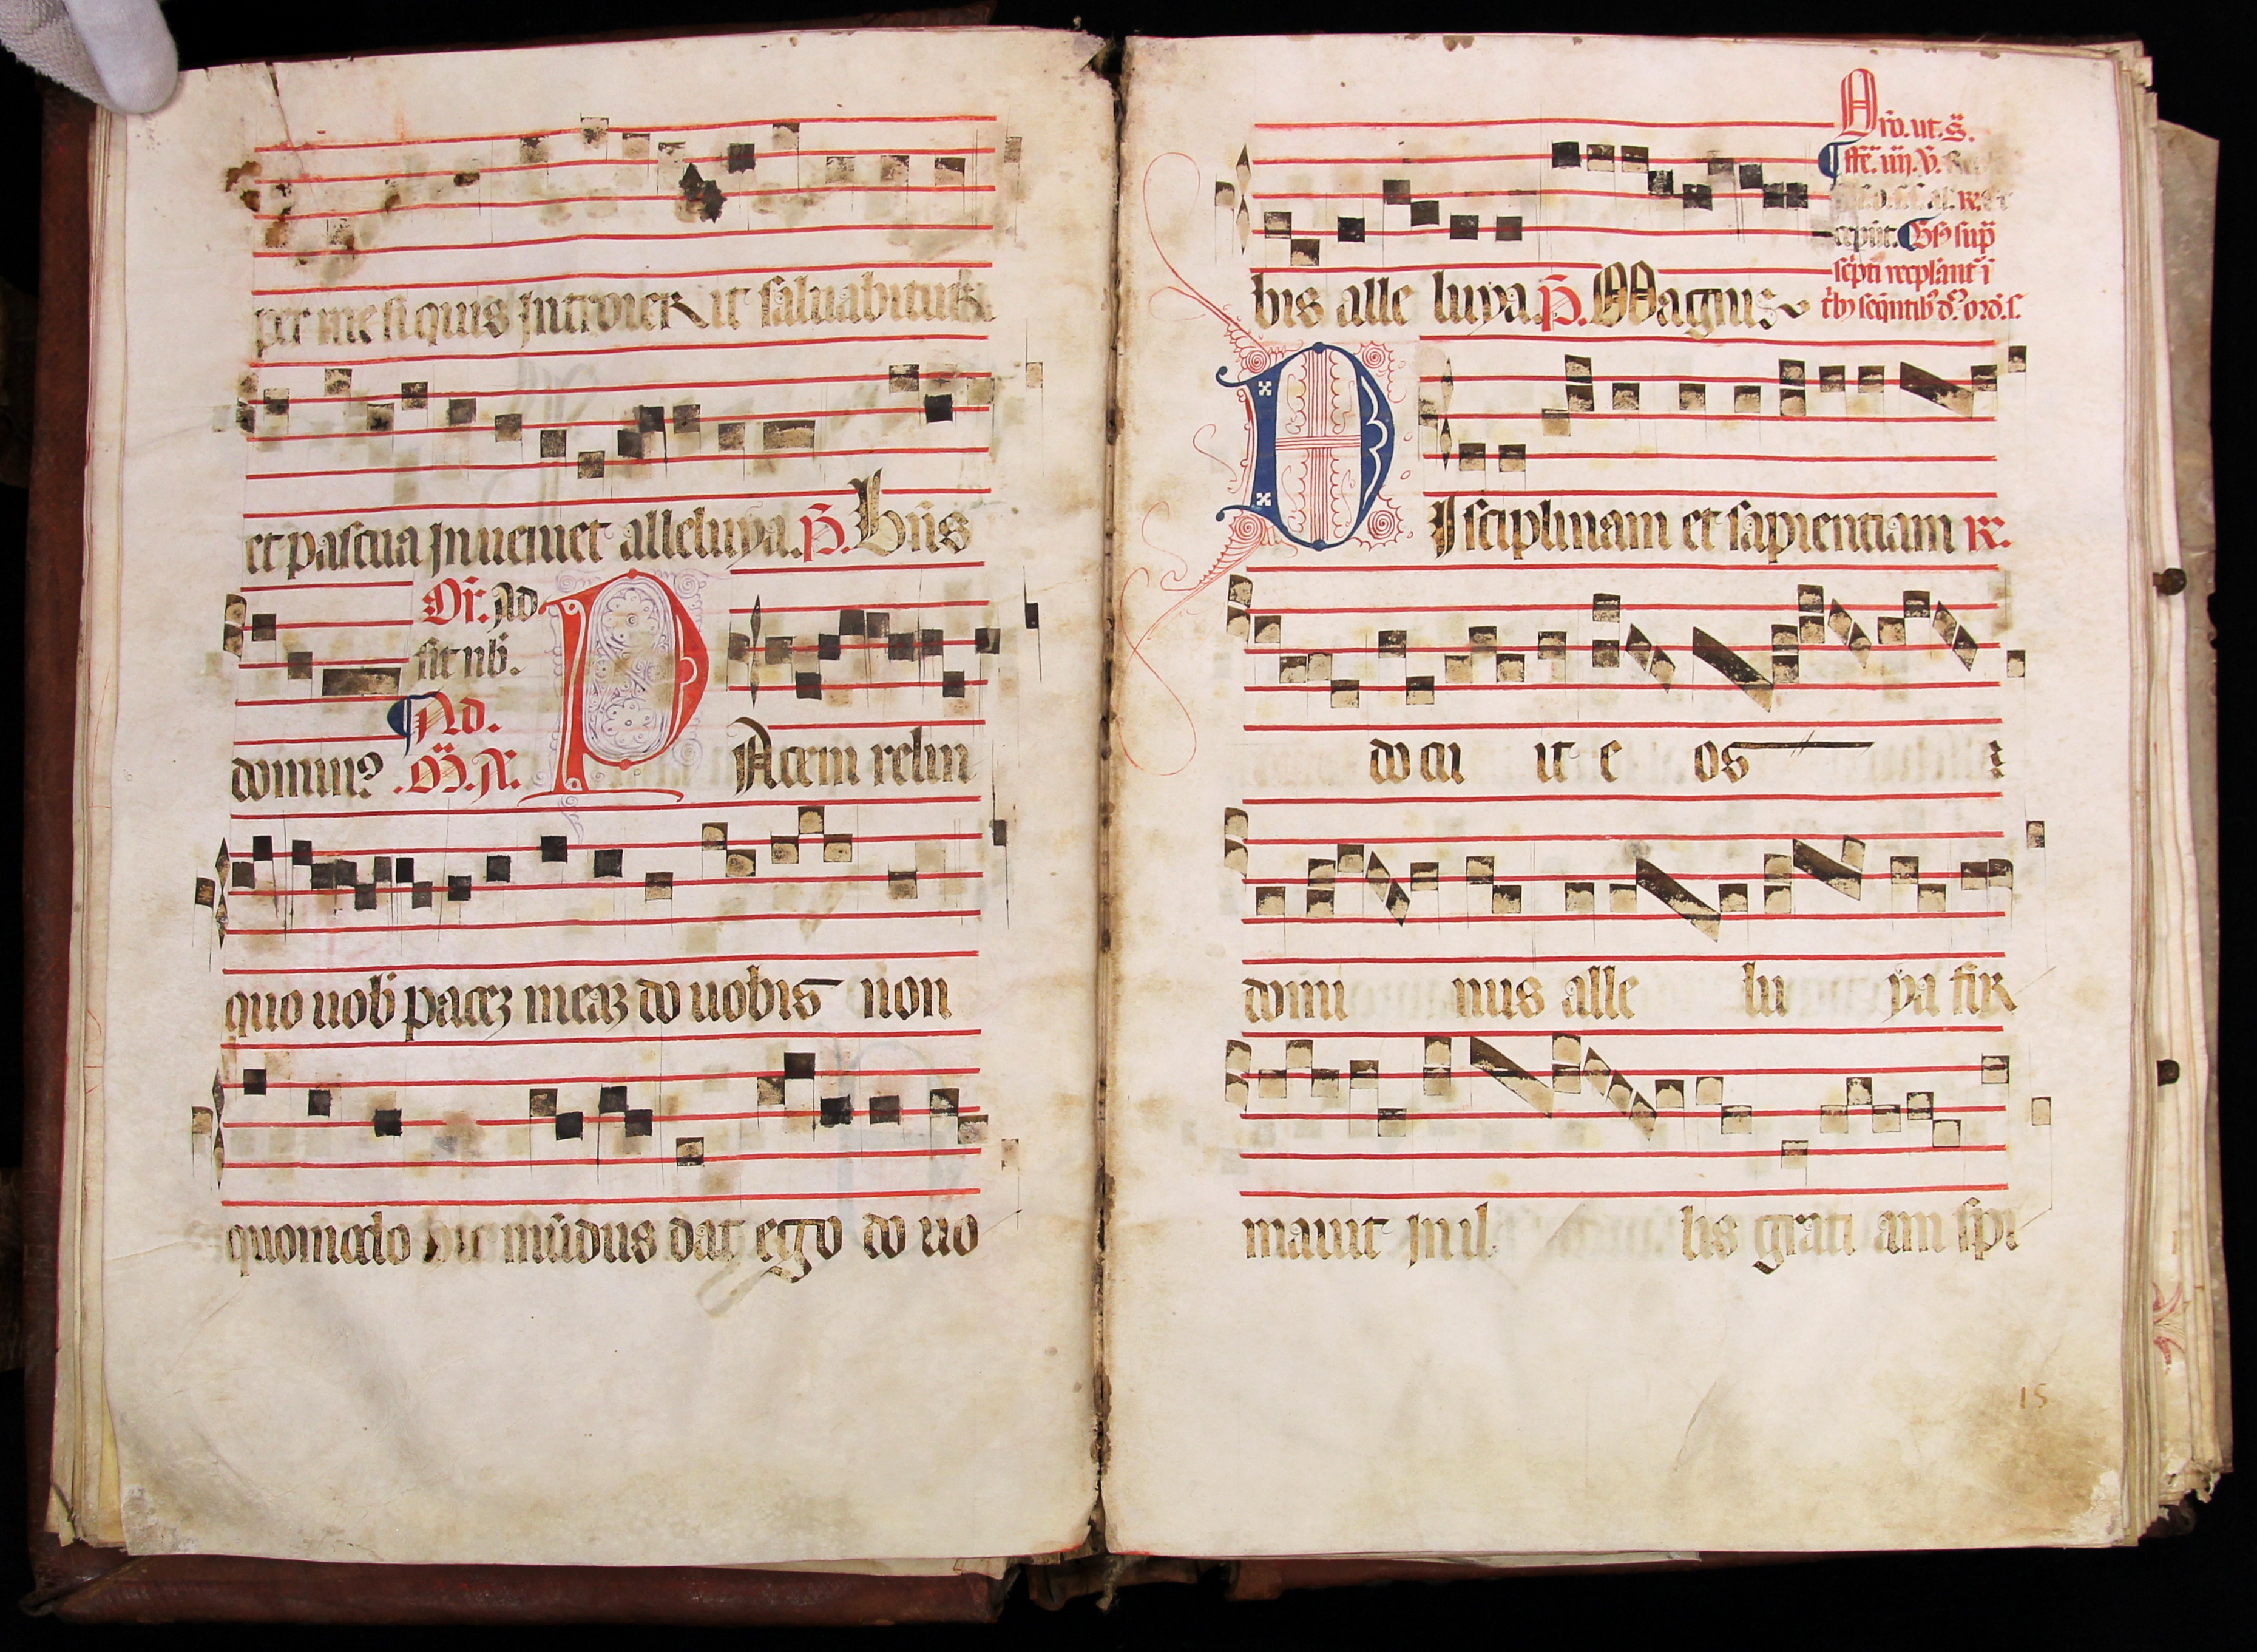 per me si quis introierit saluabitur
et pascua inueniet alleluya. P̄. Bn̄s
Or̄. Ad
sit nob̄.
Ad.
domin⁹. M̄. A.
PAcem relin
quo uob̄ pacez meaz do uobis non
quomodo hic mūdus dat ego do uo
bis alle luya. P̄. Magnus
Aro. ut. s̄.
cepit.
DIsciplinam et sapientiam R.
docu it e os
domi nus alle lu ya fir
mauit in il lis grati am spi
15